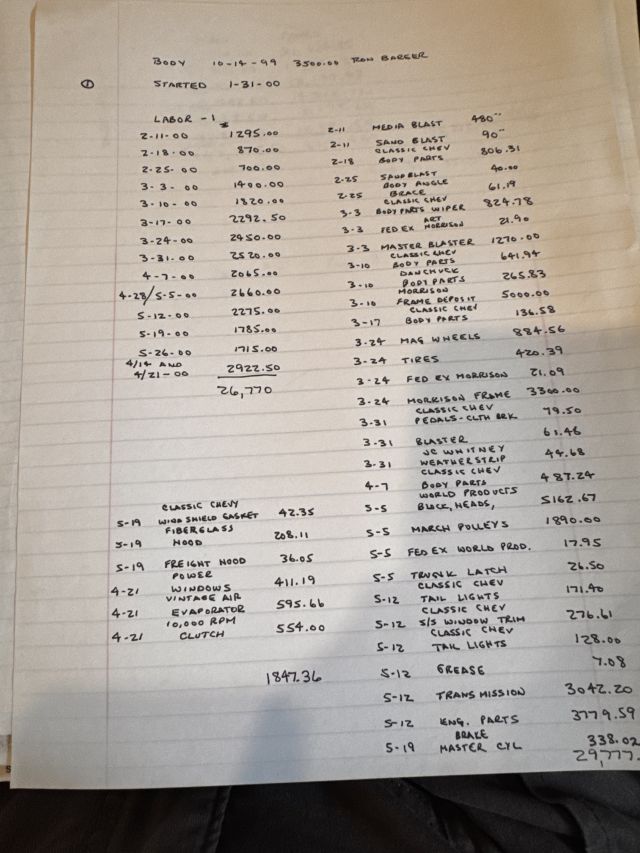 BODY 10-14-99 3500.00 RON BARGER
① STARTED 1-31-00
LABOR - 1
2-11-00 1295.00
2-18-00 870.00
2-25-00 700.00
3-3-00 1400.00
3-10-00 1820.00
3-17-00 2292.50
3-24-00 2450.00
3-31-00 2520.00
4-7-00 2065.00
4-28/5-5-00 2660.00
5-12-00 2275.00
5-19-00 1785.00
5-26-00 1715.00
4/14 AND
4/21-00 2922.50
26,770
2-11 MEDIA BLAST 480
2-11 SAND BLAST 90
CLASSIC CHEV
2-18 BODY PARTS 806.31
2-25 SANDBLAST 40.00
BODY ANGLE
2-25 BRACE 61.19
CLASSIC CHEV
3-3 BODY PARTS WIPER 824.78
ART
3-3 FED EX MORRISON 21.90
3-3 MASTER BLASTER 1270.00
CLASSIC CHEV
3-10 BODY PARTS 641.94
DANCHUCK
3-10 BODY PARTS 265.83
MORRISON
3-10 FRAME DEPOSIT 5000.00
CLASSIC CHEV
3-17 BODY PARTS 136.58
3-24 MAG WHEELS 884.56
3-24 TIRES 420.39
3-24 FED EX MORRISON 21.09
3-24 MORRISON FRAME 3300.00
CLASSIC CHEV
3-31 PEDALS-CLTH BRK 79.50
3-31 BLASTER 61.46
JC WHITNEY
3-31 WEATHERSTRIP 44.68
CLASSIC CHEV
4-7 BODY PARTS 487.24
WORLD PRODUCTS
5-5 BLOCK, HEADS, 5162.67
5-5 MARCH PULLEYS 1890.00
5-5 FED EX WORLD PROD. 17.95
5-5 TRUNK LATCH 26.50
CLASSIC CHEV
5-12 TAIL LIGHTS 171.40
CLASSIC CHEV
5-12 S/S WINDOW TRIM 276.61
CLASSIC CHEV
5-12 TAIL LIGHTS 128.00
5-12 GREASE 7.08
5-12 TRANSMISSION 3042.20
5-12 ENG. PARTS 3779.59
BRAKE
5-19 MASTER CYL 338.02
29,777.
CLASSIC CHEVY
5-19 WINDSHIELD GASKET 42.35
FIBERGLASS
5-19 HOOD 208.11
5-19 FREIGHT HOOD 36.05
POWER
4-21 WINDOWS 411.19
VINTAGE AIR
4-21 EVAPORATOR 595.66
10,000 RPM
4-21 CLUTCH 554.00
1847.36